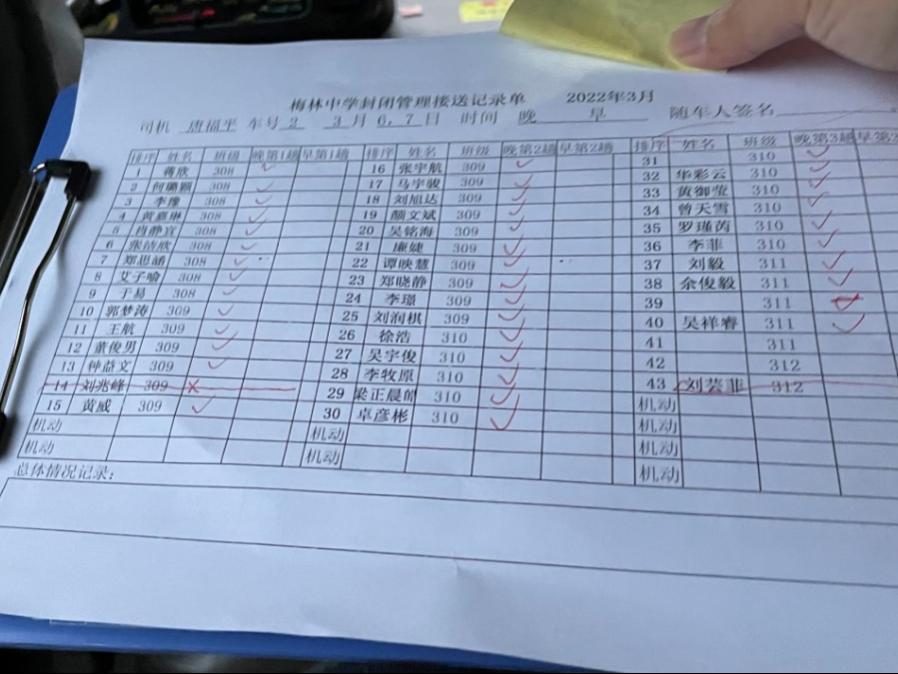 梅林中学封闭管理接送记录单 2022年3月
司机 唐福平 车号 2 3 月 6,7 日 时间 晚 早 随车人签名
排序 姓名 班级 晚第1趟 早第1趟 排序 姓名 班级 晚第2趟 早第2趟 排序 姓名 班级 晚第3趟 早第3
1 蒋欣 308 ✓ 16 张宇航 309 ✓ 31 310 ✓
2 何璐颖 308 ✓ 17 马宇骏 309 ✓ 32 华彩云 310 ✓
3 李豫 308 ✓ 18 刘旭达 309 ✓ 33 黄御莹 310 ✓
4 黄嘉琳 308 ✓ 19 颜文斌 309 ✓ 34 曾天雪 310 ✓
5 肖静宜 308 ✓ 20 吴铭海 309 ✓ 35 罗瑾芮 310 ✓
6 张洁欣 308 ✓ 21 廉婕 309 ✓ 36 李菲 310 ✓
7 郑思涵 308 ✓ 22 谭映慧 309 ✓ 37 刘毅 311 ✓
8 艾子喻 308 ✓ 23 郑晓静 309 ✓ 38 余俊毅 311 ✓
9 于易 308 ✓ 24 李璟 309 ✓ 39 311
10 郭梦涛 309 ✓ 25 刘润棋 309 ✓ 40 吴祥睿 311 ✓
11 王航 309 ✓ 26 徐浩 310 ✓ 41 311
12 董俊男 309 ✓ 27 吴宇俊 310 ✓ 42 312
13 种益文 309 ✓ 28 李牧原 310 ✓ 43 刘芸菲 312
14 刘兆峰 309 × 29 梁正晨 310 ✓ 机动
15 黄威 309 ✓ 30 卓彦彬 310 ✓ 机动
机动 机动 机动
机动 机动 机动
总体情况记录：